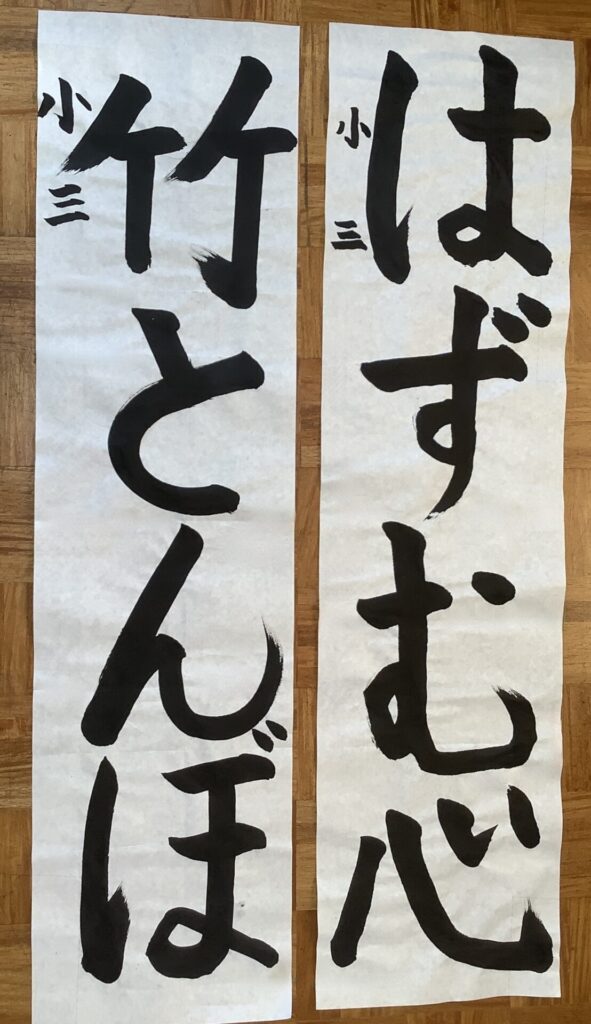 はずむ心
小三
竹とんぼ
小三